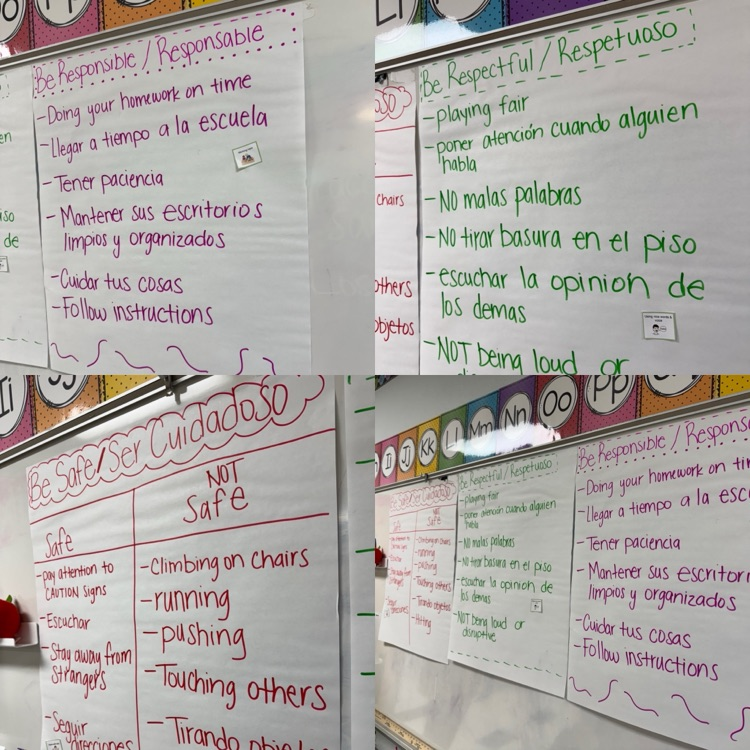 Be Responsible / Responsable
-Doing your homework on time
-Llegar a tiempo a la escuela
-Tener paciencia
-Mantener sus escritorios
limpios y organizados
-Cuidar tus cosas
-Follow instructions
en
iso
de
Li
Be Respectful / Respetuoso
-playing fair
-poner atención cuando alguien
habla
-NO malas palabras
-NO tirar basura en el piso
-escuchar la opinion de
los demas
-NOT being loud or
oso
chairs
others
objetos
Ii
Be Safe/Ser Cuidadoso
Safe
NOT
Safe
-pay attention to
CAUTION signs
-Escuchar
-Stay away from
strangers
-Seguir
direcciones
-Climbing on chairs
-running
-pushing
-Touching others
-Tirando obje
Ii
Jj
Kk
Ll
Mm
Nn
Oo
Pp
Be Safe/Ser Cuidadoso
Safe
NOT
Safe
-Climbing on chairs
-running
-pushing
-Touching others
-Tirando objetos
-Hitting
Be Respectful / Respetuoso
-playing fair
-poner atención cuando alguien
habla
-NO malas palabras
-NO tirar basura en el piso
-escuchar la opinion de
los demas
-NOT being loud or
disruptive
Be Responsible / Respons
-Doing your homework on ti
-Llegar a tiempo a la esc
-Tener paciencia
-Mantener sus escritor
limpios y organizados
-Cuidar tus cosas
-Follow instructions